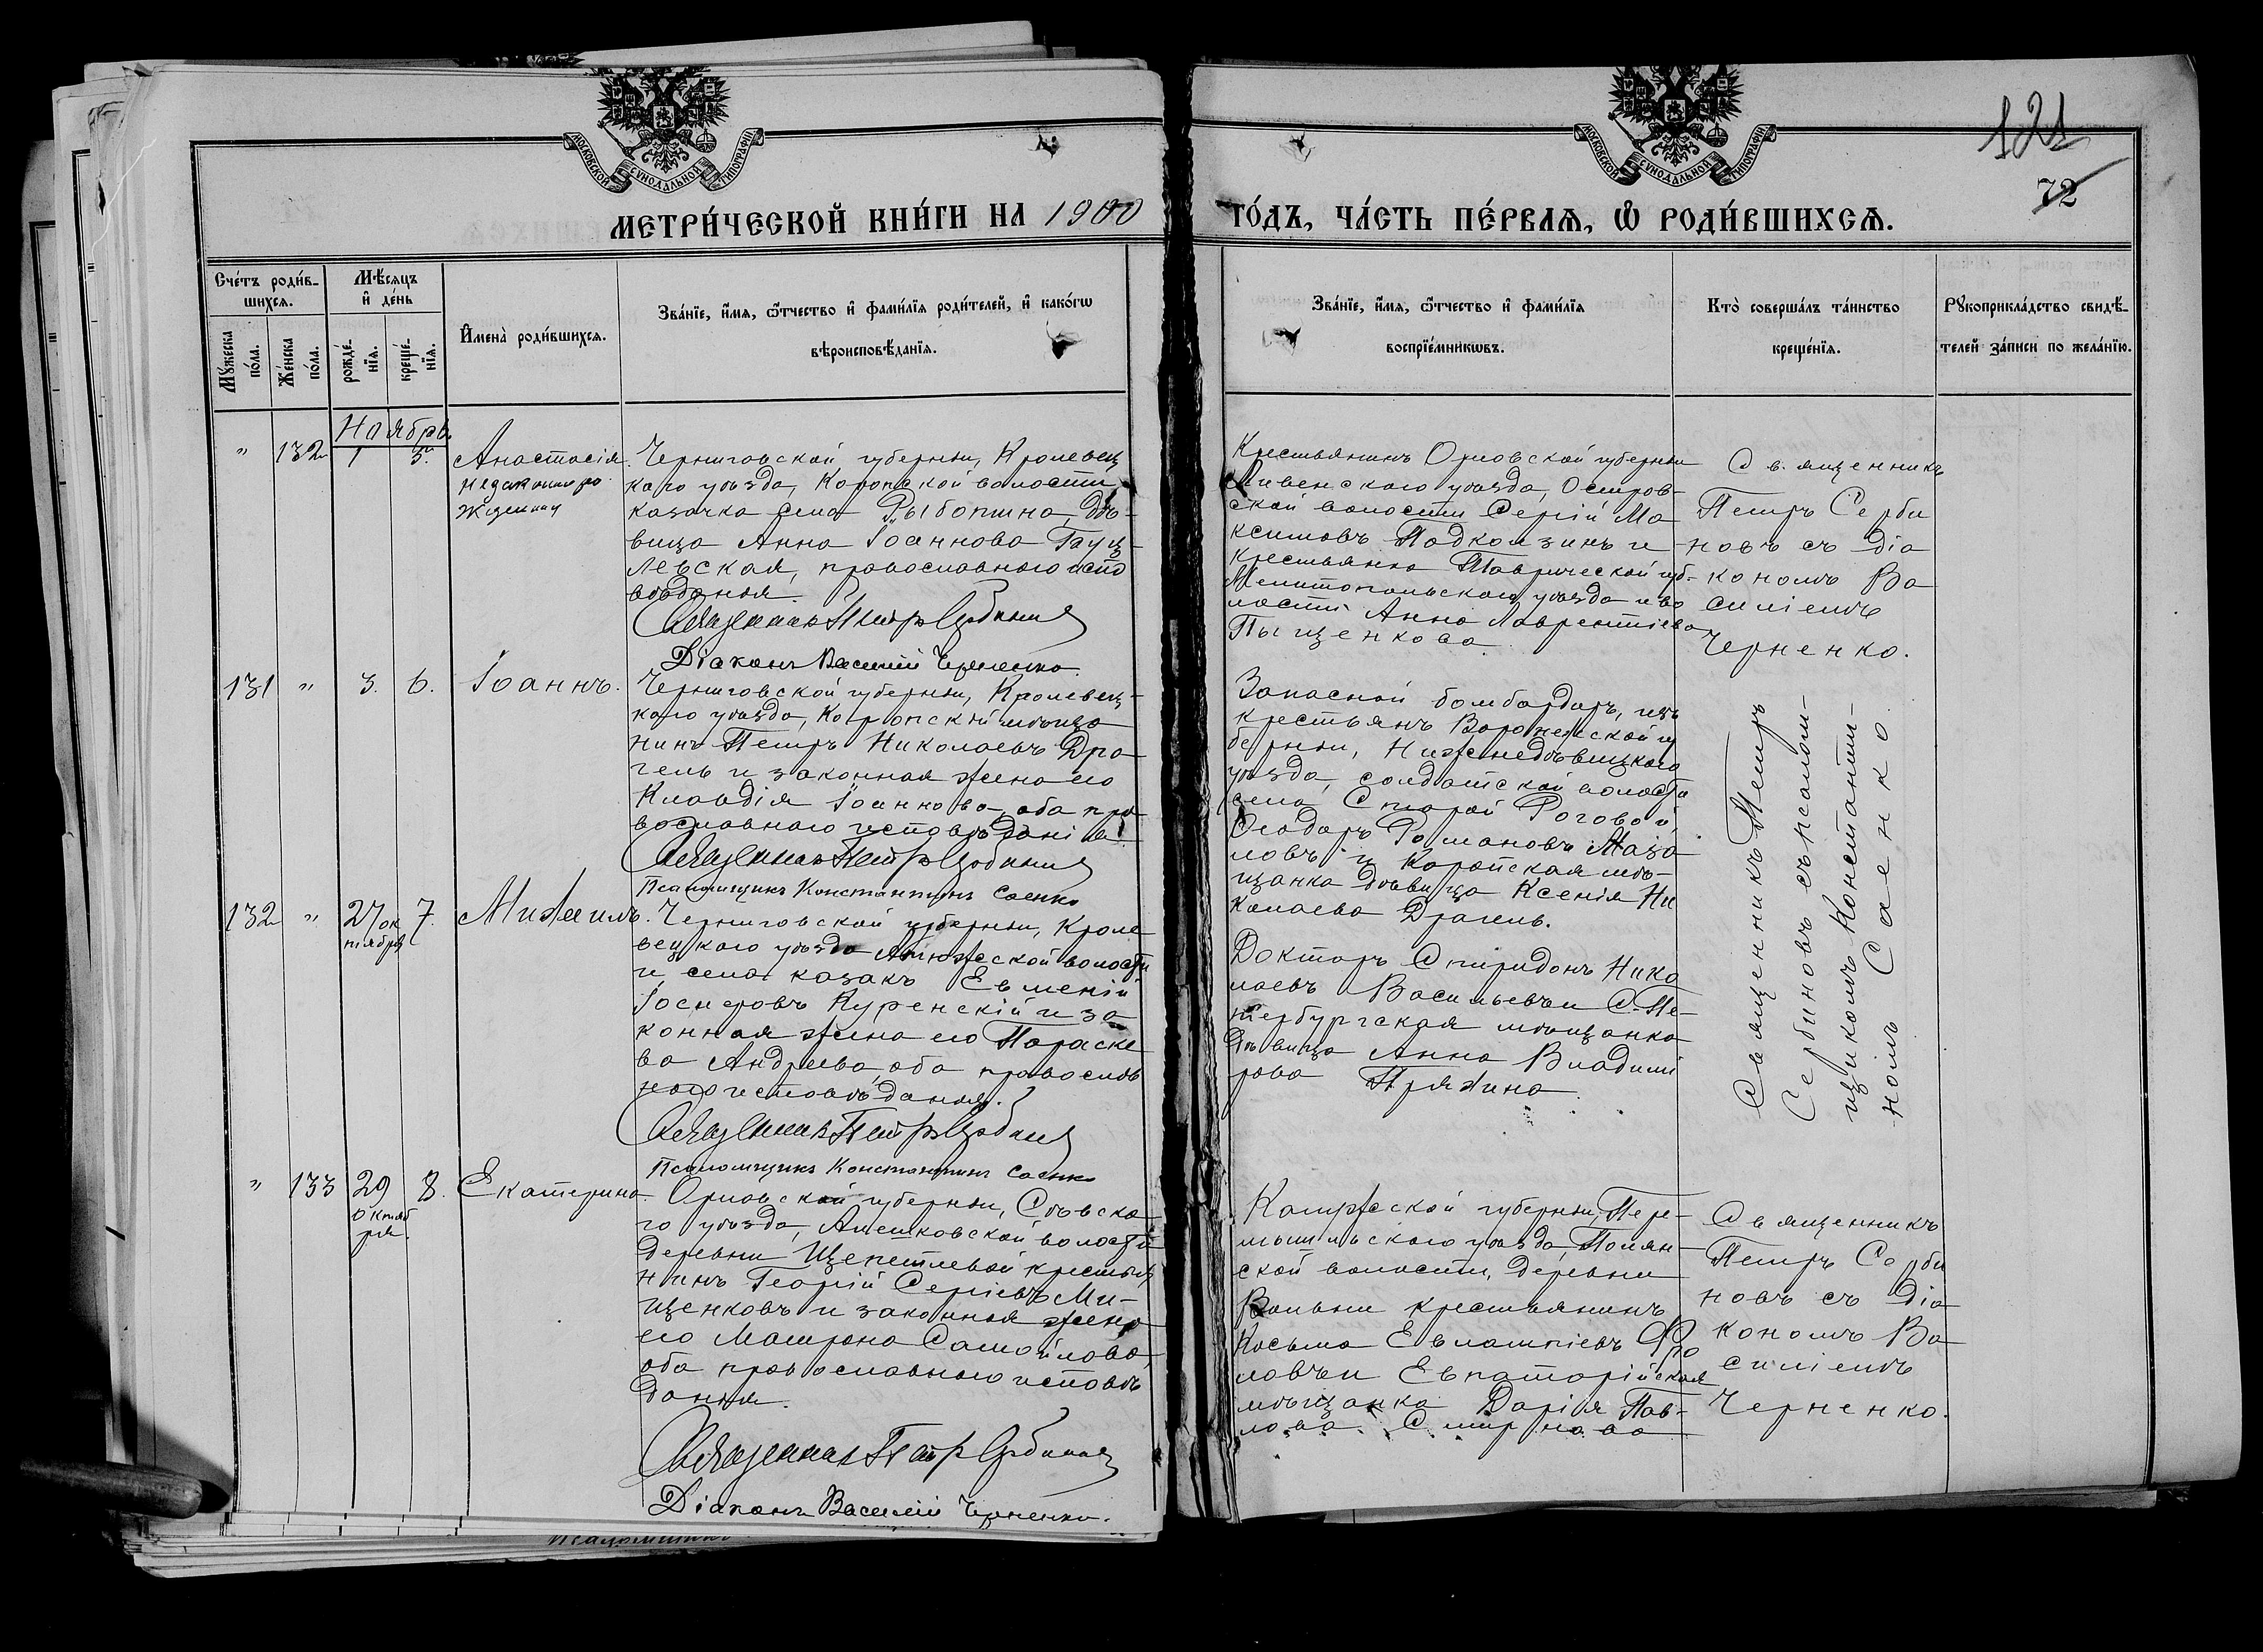 МОСКОВСКОЙ СУНОДАЛЬНОЙ ТИПОГРАФІИ
МОСКОВСКОЙ СУНОДАЛЬНОЙ ТИПОГРАФІИ
121
72
МЕТРИ́ЧЕСКОЙ КНИ́ГИ НА 1900
ГО́ДЪ, ЧА́СТЬ ПЕ́РВАѦ, Ѡ҆ РОДИ́ВШИХСѦ.
Сче́тъ роди́в-
шихсѧ.
Мѣ́сѧцъ
и҆ де́нь
Му́жеска
по́ла.
Же́нска
по́ла.
рожде́-
нїѧ.
креще́-
нїѧ.
И҆мена̀ роди́вшихсѧ.
Зва́нїе, и҆́мѧ, ѻ҆́тчество и҆ фами́лїѧ роди́телей, и҆ како́гѡ
вѣроисповѣ́данїѧ.
Зва́нїе, и҆́мѧ, ѻ҆́тчество и҆ фами́лїѧ
воспрїе́мникѡвъ.
Кто̀ соверша́лъ та́инство
креще́нїѧ.
Рꙋкоприкла́дство свидѣ́-
телей за́писи по жела́нїю.
Ноябрь
" 132 1 5.
Анастасія
незаконноро
жденная
Черниговской губерніи, Кролевец
каго уѣзда, Коропской волости
казачка села Рыботина, дѣ-
вица Анна Іоаннова
левская, православнаго испо
вѣданія.
Священникъ Петръ Сербиновъ
Діаконъ Василій Черненко.
Крестьянинъ Орловской губерніи
Ливенскаго уѣзда, Остров-
ской волости Сергій Ма
ксимовъ Подколзинъ и
крестьянка Таврической губ.
Мелитопольскаго уѣзда и во
лости Анна Лаврентіева
Пыщенкова
Священникъ
Петръ Серби
новъ съ діа
кономъ Ва
силіемъ
Черненко.
131 " 3. 6. Іоаннъ.
Черниговской губерніи, Кролевец-
каго уѣзда, Коропскій мѣща
нинъ Петръ Николаевъ Дра
гель и законная жена его
Клавдія Іоаннова, оба пра
вославнаго исповѣданія.
Священникъ Петръ Сербиновъ
Псаломщикъ Константинъ Саенко
Запасной бомбардиръ, изъ
крестьянъ Воронежской гу
берніи, Нижнедѣвицкаго
уѣзда, солдатской волости
села Старой Роговой,
Ѳеодоръ Романовъ Маза
ловъ и Коропская мѣ-
щанка дѣвица Ксенія Ни
колаева Драгель.
Священникъ Петръ
Сербиновъ съ псалом-
щикомъ Константи-
номъ Саенко.
132 " 27 ок 7. Михаилъ.
тября
Черниговской губерніи, Кроле
вецкаго уѣзда волости
и села казакъ Евменій
Іосифовъ Куренскій и за
конная жена его Параске
ва Андреева, оба православ
наго исповѣданія.
Священникъ Петръ Сербиновъ
Псаломщикъ Константинъ Саенко
Докторъ Спиридонъ Нико
лаевъ Васильевъ и С.-Пе-
тербургская мѣщанка
дѣвица Анна Владими
рова Пряхина.
" 133 29 8. Екатерина.
октяб
ря.
Орловской губерніи, Сѣвска
го уѣзда, Алешковской волости
деревни Щепетлевой крестья
нинъ Георгій Сергіевъ Ми-
щенковъ и законная жена
его Матрона Самойлова,
оба православнаго исповѣ
данія.
Священникъ Петръ Сербиновъ
Діаконъ Василій Черненко.
Калужской губерніи, Пере-
мышльскаго уѣзда, Полян-
ской волости, деревни
крестьянинъ
Косьма Евлампіевъ Фро
ловъ и Евпаторійская
мѣщанка Дарія Пав-
лова Смирнова
Священникъ
Петръ Серби
новъ съ діа
кономъ Ва
силіемъ
Черненко.